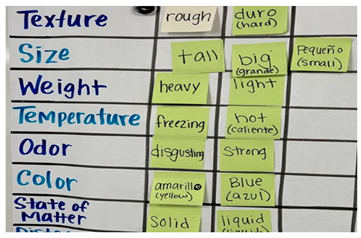 Texture rough duro
(hard)
Size tall big
(grande) Pequeño
(small)
Weight heavy light
Temperature freezing hot
(caliente)
Odor disgusting Strong
Color amarillo
(yellow) Blue
(azul)
State of
Matter Solid liquid